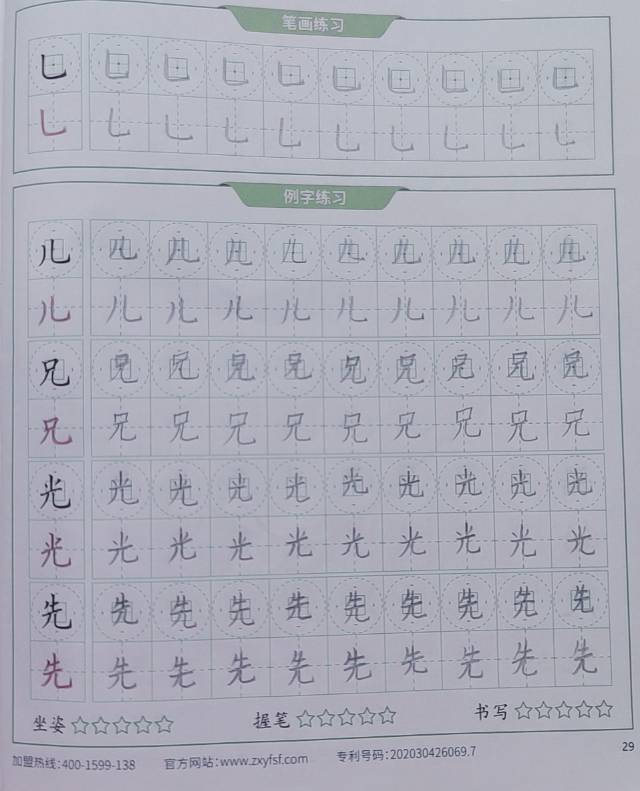 笔画练习
乚 乚 乚 乚 乚 乚 乚 乚 乚 乚
乚 乚 乚 乚 乚 乚 乚 乚 乚 乚
例字练习
儿 儿 儿 儿 儿 儿 儿 儿 儿 儿
儿 儿 儿 儿 儿 儿 儿 儿 儿 儿
兄 兄 兄 兄 兄 兄 兄 兄 兄 兄
兄 兄 兄 兄 兄 兄 兄 兄 兄 兄
光 光 光 光 光 光 光 光 光 光
光 光 光 光 光 光 光 光 光 光
先 先 先 先 先 先 先 先 先 先
先 先 先 先 先 先 先 先 先 先
坐姿☆☆☆☆☆ 握笔☆☆☆☆☆ 书写☆☆☆☆☆
加盟热线:400-1599-138 官方网站:www.zxyfsf.com 专利号码:202030426069.7 29